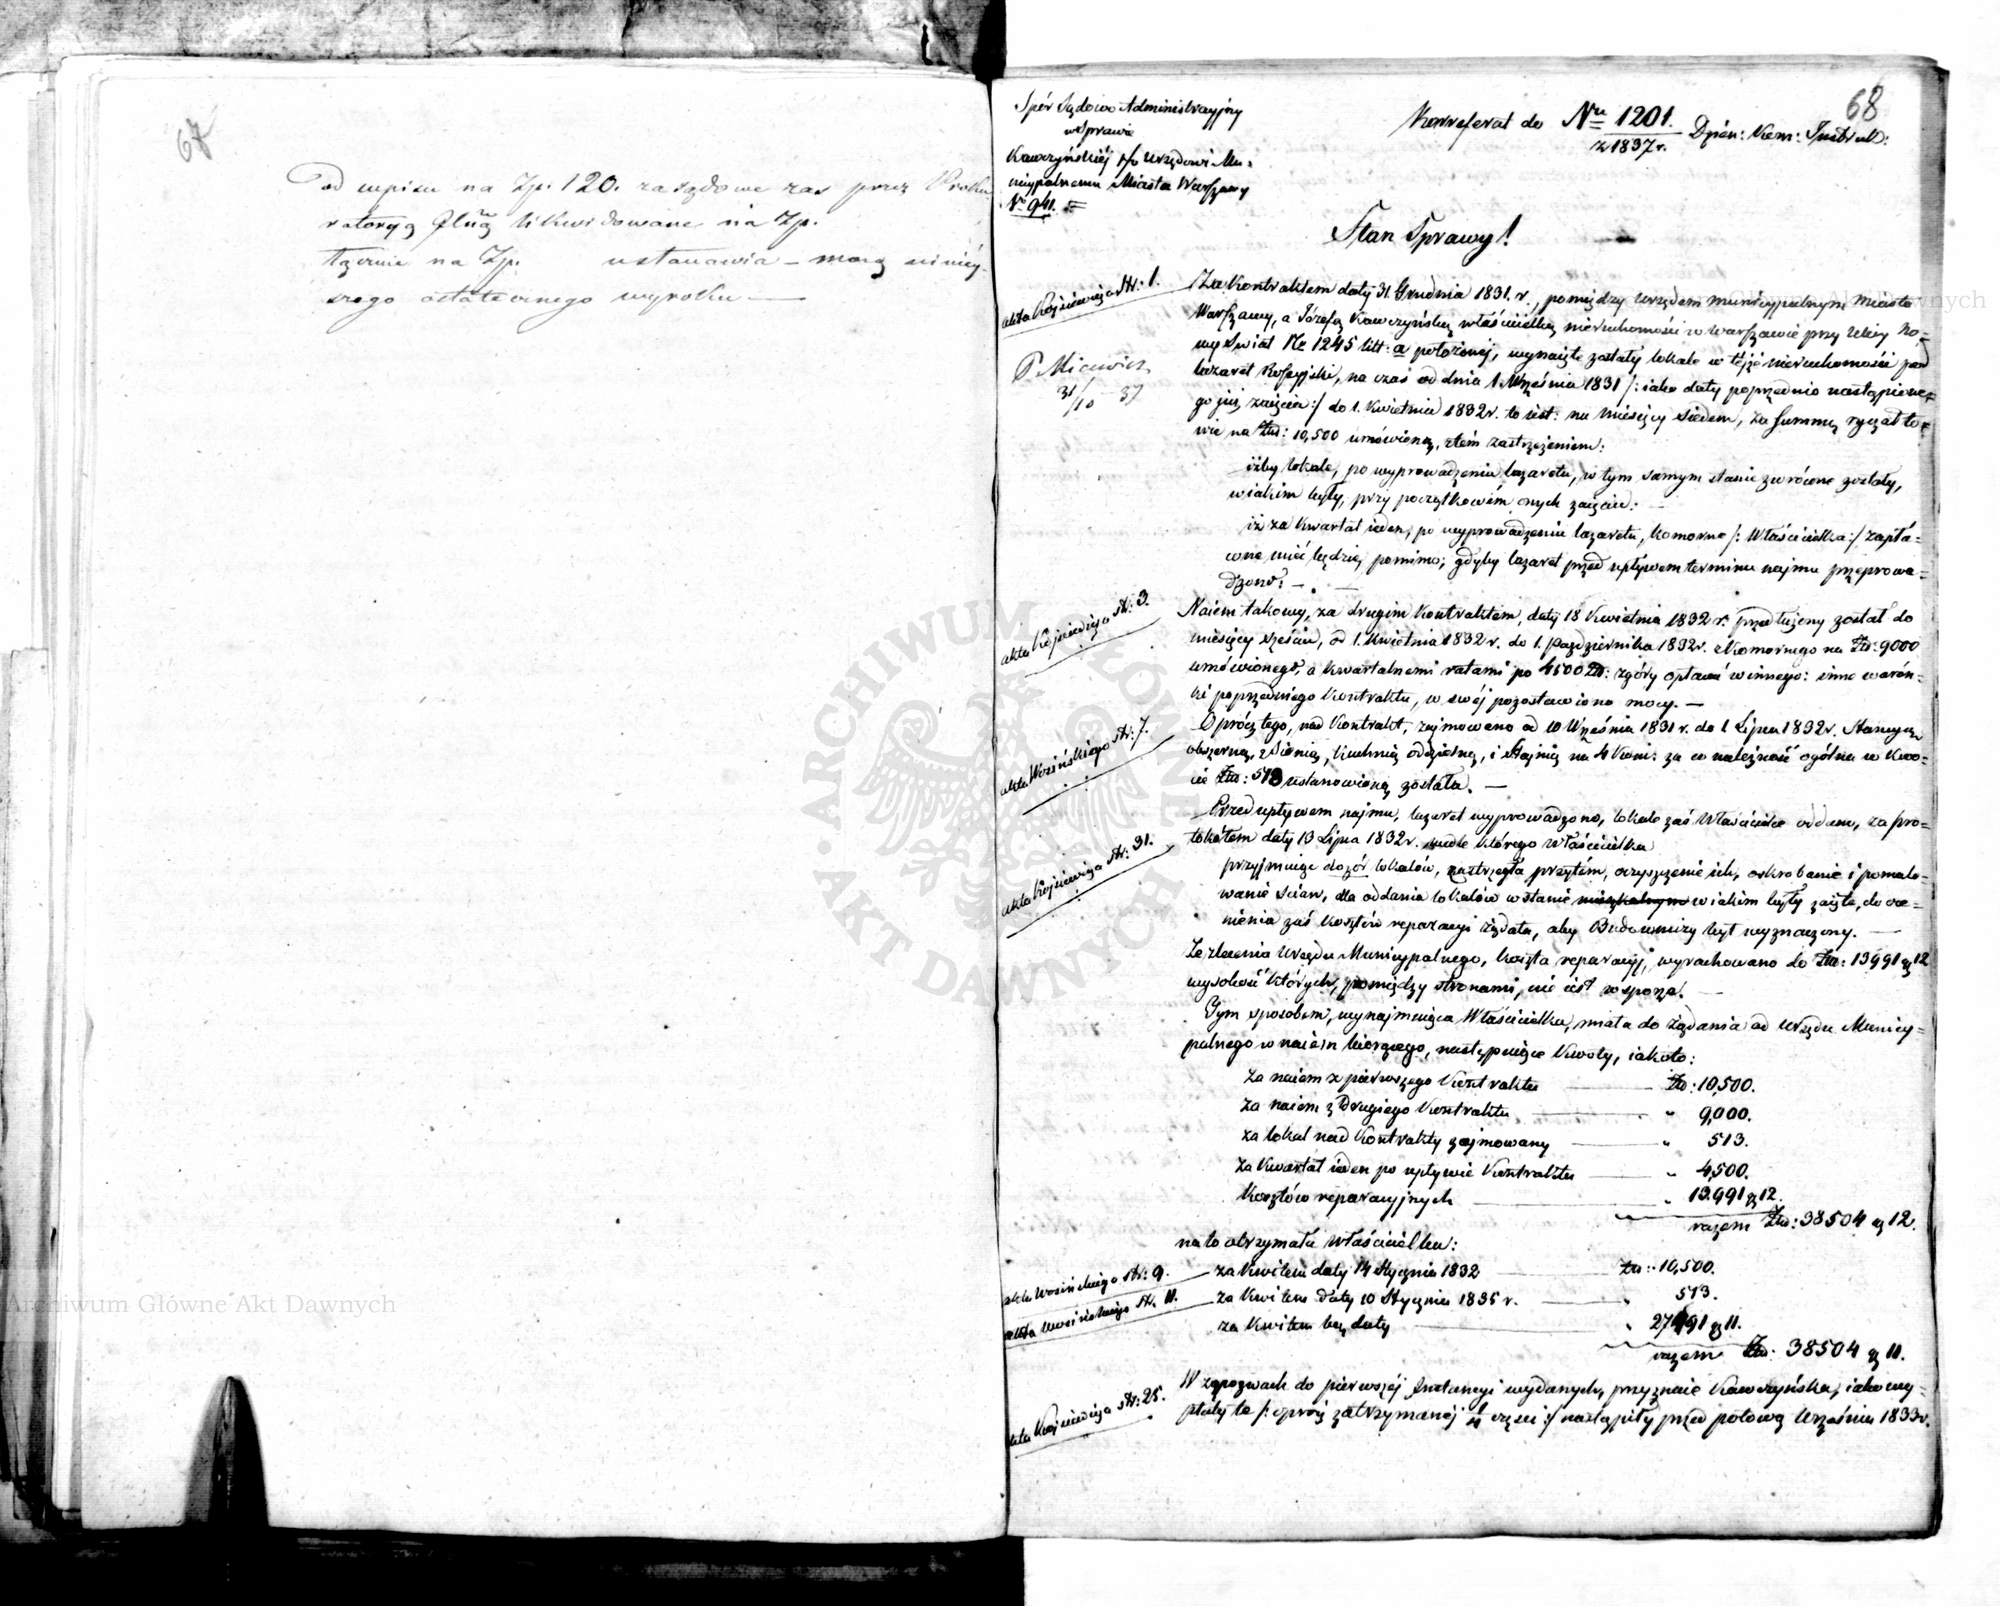 67
od wpisu na Zp. 120. zasądzone zaś przez Proku
ratoryą likwidowane na Zp.
łącznie na Zp. ustanawia – mocą niniéy-
szego ostatecznego wyroku —
68
Spór Sądowo Administracyjny
w Sprawie
Kawczyńskiéj p/o Urzędowi Mu-
nicypalnemu Miasta Warszawy
No 941.
Korreferat do Nru 1201. Dzien: Kom: Instrukc:
z 1837 r.
Stan Sprawy!
akta Kojsiewicza str: 1.
P. Micewicz
31/10 37
Za Kontraktem daty 31 Grudnia 1831. r., pomiędzy Urzędem Municypalnym Miasta
Warszawy, a Józefą Kawczyńską właścicielką nieruchomości w Warszawie przy Ulicy No-
wy Swiat No 1245 litt: a położonéj, wynajęte zostały lokale w téjże nieruchomości pod
lazaret Rossyjski, na czas od dnia 1 Września 1831 /: iako daty poprzednio nastąpione-
go już zajęcia :/ do 1. Kwietnia 1832 r. to iest: na miesięcy siedem, za summę ryczałto-
wie na Złt: 10,500 umówioną, z tém zastrzeżeniem:
iżby lokale, po wyprowadzeniu lazaretu, w tym samym stanie zwrócone zostały,
w iakim były, przy początkowém onych zajęciu: —
iż za kwartał ieden, po wyprowadzeniu lazaretu, komorne /: Właścicielka :/ zapła-
cone mieć będzie, pomimo, gdyby lazaret przed upływem terminu najmu przeprowa-
dzono. —
akta Kojsiewicza str: 3.
Naiem takowy, za drugim Kontraktem, daty 18 Kwietnia 1832 r. przedłużony został do
miesięcy sześciu, od 1. Kwietnia 1832 r. do 1. Października 1832 r. z Komornego na Złt: 9000
umówionego, a kwartalnemi ratami po 4500 Złt: zgóry opłacać winnego: inne warun-
ki poprzedniego Kontraktu, w swéj pozostawiono mocy. —
akta Wosińskiego str: 7.
Oprócz tego, nad Kontrakt, zajmowano od 10 Września 1831 r. do 1 Lipca 1832 r. Stancyą
obszerną, z Sienią, kuchnią oddzielną, i Stajnią na 4 Koni: za co należność ogólna w kwo-
cie Złt: 513 ustanowioną została. —
akta Kojsiewicza str: 31.
Przed upływem najmu, lazaret wyprowadzono, lokale zaś Właścicielce oddano, za pro-
tokółem daty 13 Lipca 1832 r. wedle którego Właścicielka
przyjmuiąc dozór lokalów, zastrzegła przytém, oczyszczenie ich, oskrobanie i pomalo-
wanie ścian, dla oddania lokalów w stanie mieszkalnym w iakim były zajęte, do oce-
nienia zaś kosztów reparacyi żądała, aby Budowniczy był wyznaczony. —
Ze zlecenia Urzędu Municypalnego, koszta reparacyj, wyrachowano do Złt: 13991 gr 12
wysokość których, pomiędzy stronami, nie iest w sporze. —
Tym sposobem, wynajmuiąca Właścicielka, miała do żądania od Urzędu Municy-
palnego w naiem biorącego, następuiące kwoty, iakoto:
Za naiem z pierwszego Kontraktu — Złt: 10,500.
Za naiem z Drugiego Kontraktu — " 9,000.
za lokal nad Kontrakty zajmowany — " 513.
za Kwartał ieden po upływie Kontraktu — " 4,500.
Kosztów reparacyjnych — " 13,991 gr 12.
razem Złt: 38504 gr 12.
na to otrzymała Właścicielka:
akta Wosińskiego str: 9. za Kwitem daty 14 Stycznia 1832 — Złt: 10,500.
akta Wosińskiego str. 11. za Kwitem daty 10 Stycznia 1835 r. — " 513.
za Kwitem bez daty — " 27491 gr 11.
razem Złt: 38504 gr 11.
akta Kojsiewicza str: 25.
W zapozwach do pierwszéj Instancyi wydanych, przyznaie Kawczyńska, iakowy-
płaty te /: oprócz zatrzymanéj 1/4 części :/ nastąpiły przed połową Września 1833 r.
Archiwum Główne Akt Dawnych
Archiwum Główne Akt Dawnych
ARCHIWUM GŁÓWNE AKT DAWNYCH